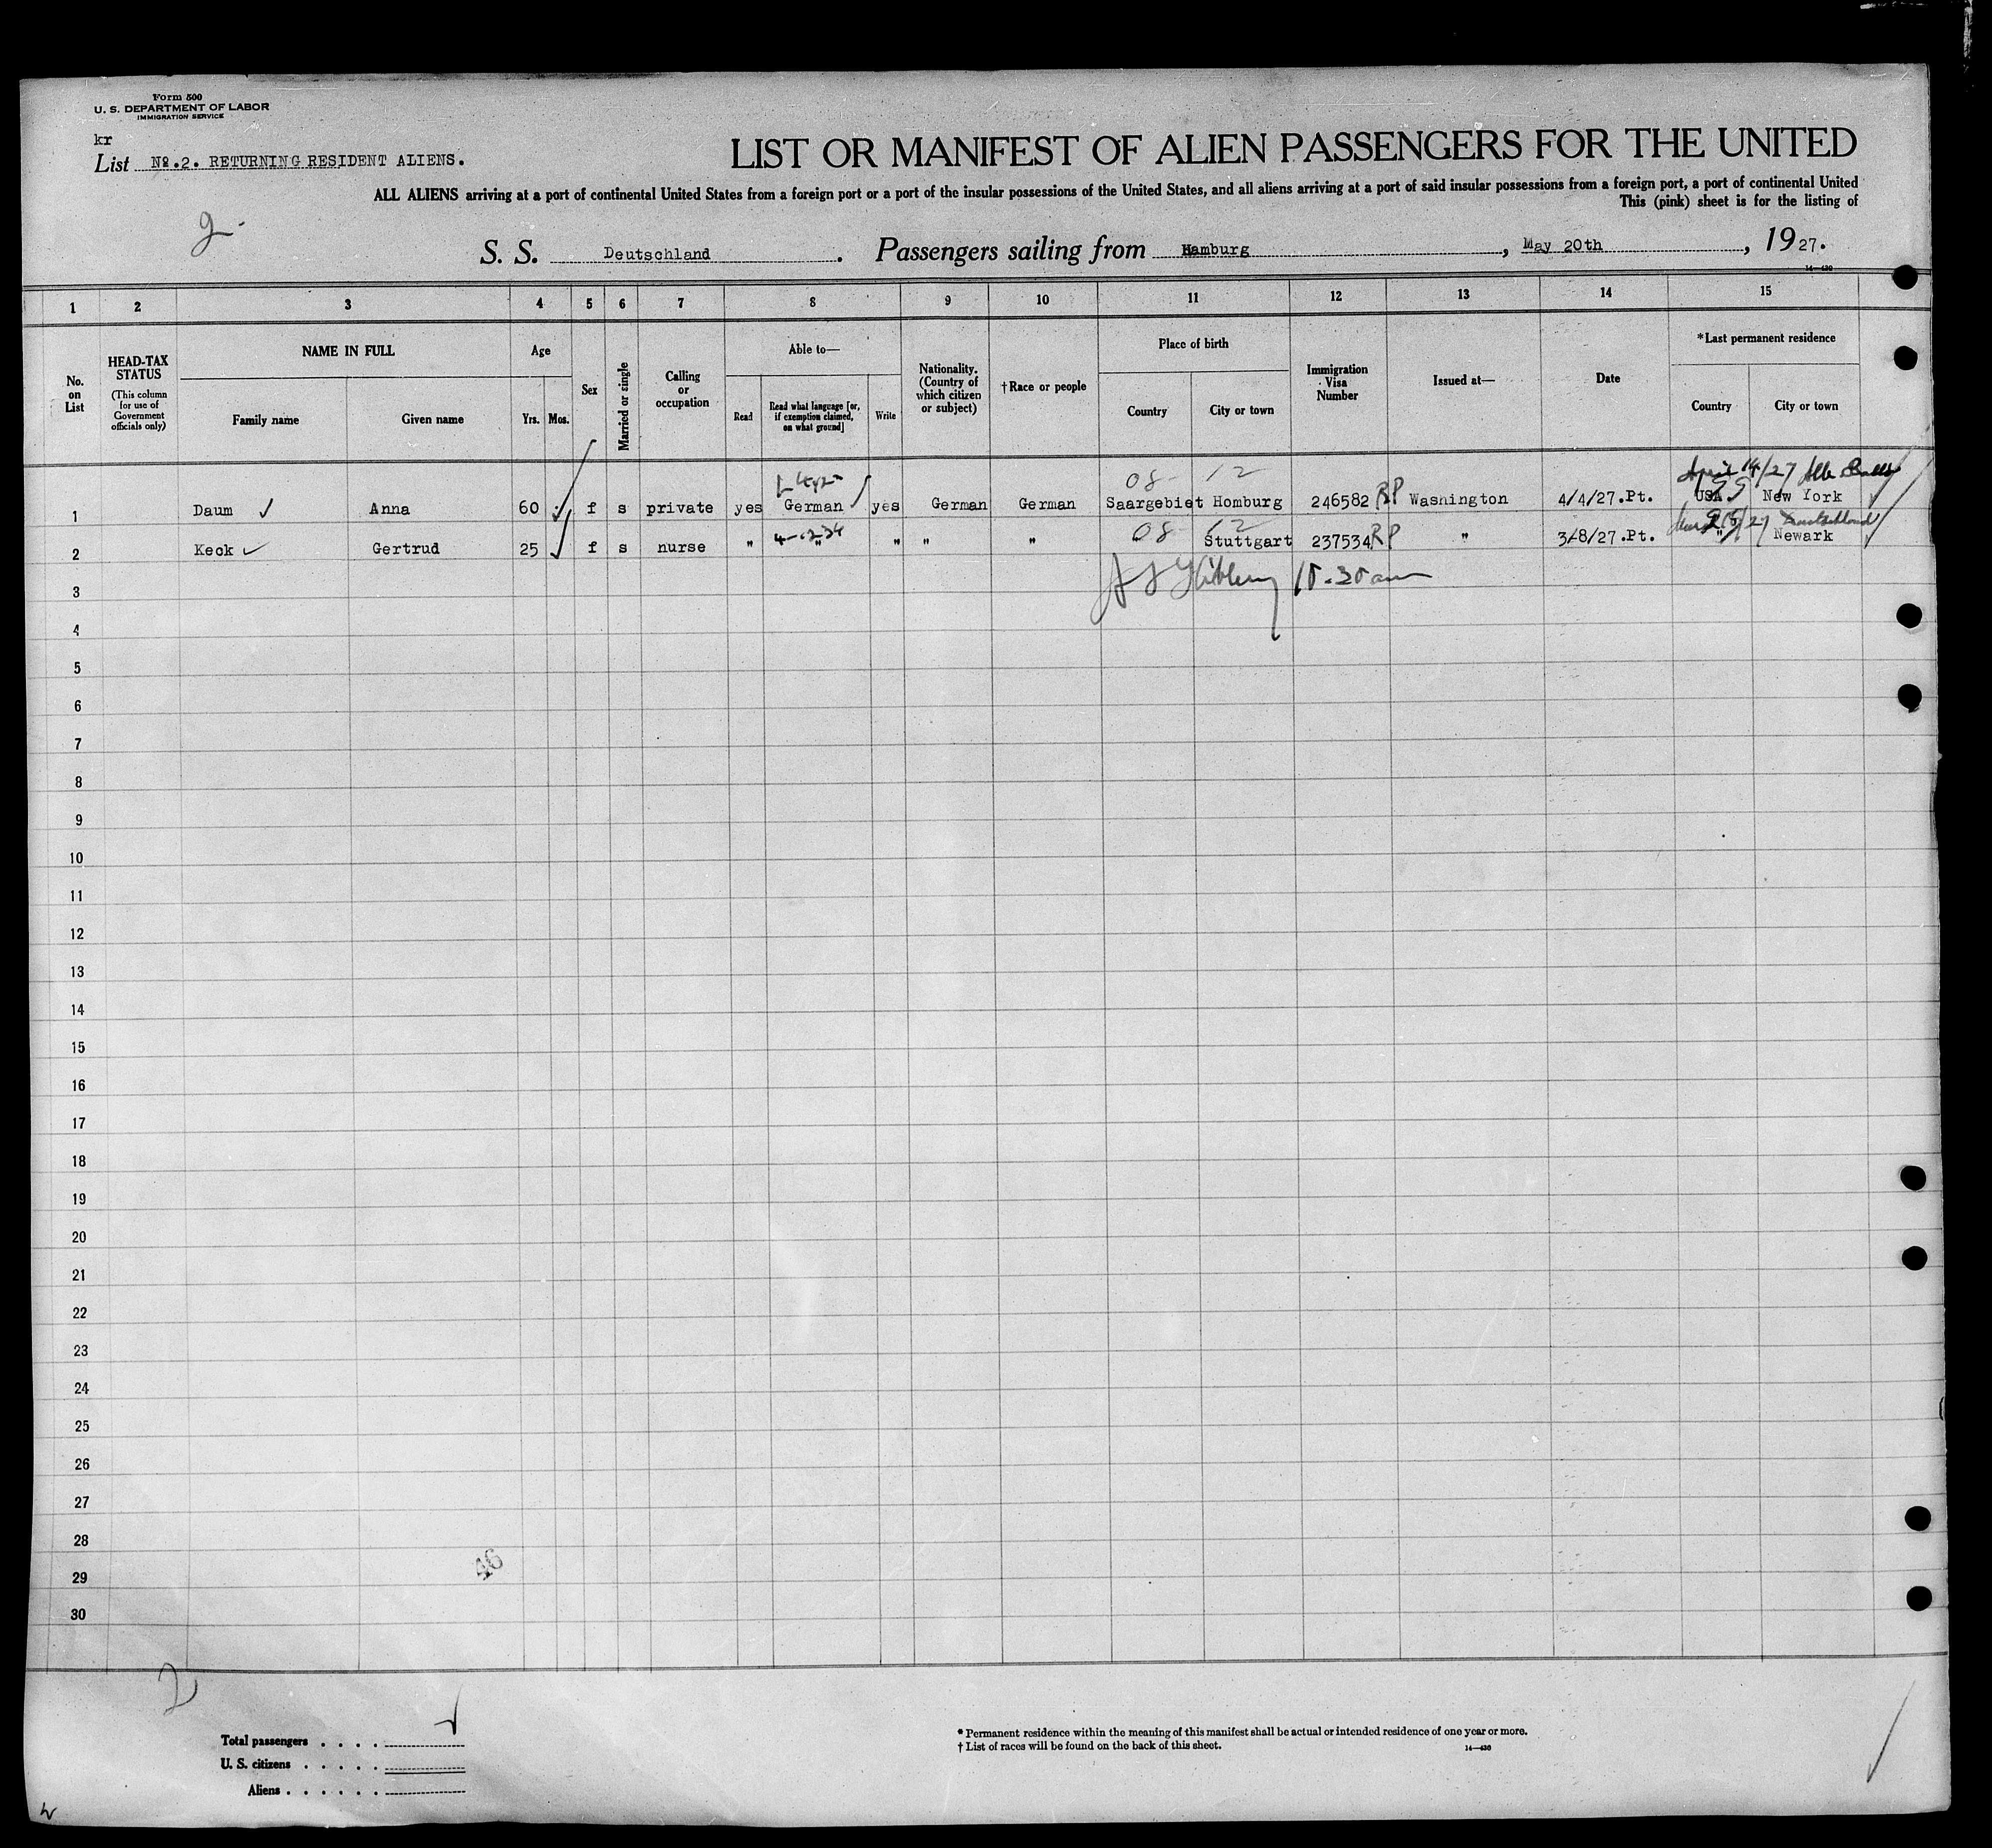 Form 500
U. S. DEPARTMENT OF LABOR
IMMIGRATION SERVICE
kr
List No.2. RETURNING RESIDENT ALIENS.
LIST OR MANIFEST OF ALIEN PASSENGERS FOR THE UNITED
ALL ALIENS arriving at a port of continental United States from a foreign port or a port of the insular possessions of the United States, and all aliens arriving at a port of said insular possessions from a foreign port, a port of continental United
This (pink) sheet is for the listing of
2
S. S. Deutschland. Passengers sailing from Hamburg, May 20th, 1927.
14—430
1 2 3 4 5 6 7 8 9 10 11 12 13 14 15
No. on List
HEAD-TAX STATUS
(This column for use of Government officials only)
NAME IN FULL
Family name
Given name
Age
Yrs.
Mos.
Sex
Married or single
Calling or occupation
Able to—
Read
Read what language [or, if exemption claimed, on what ground]
Write
Nationality. (Country of which citizen or subject)
†Race or people
Place of birth
Country
City or town
Immigration Visa Number
Issued at—
Date
*Last permanent residence
Country
City or town
08 12 April 14/27
1 Daum Anna 60 f s private yes German yes German German Saargebiet Homburg 246582 RP Washington 4/4/27.Pt. USA New York
08 12 Deutschland
2 Keck Gertrud 25 f s nurse " " " " " Stuttgart 237534 RP " 3/8/27.Pt. " Newark
10.30 am
3
4
5
6
7
8
9
10
11
12
13
14
15
16
17
18
19
20
21
22
23
24
25
26
27
28
29
30
46
2
Total passengers . . . .
U. S. citizens . . . . .
Aliens . . . . . .
* Permanent residence within the meaning of this manifest shall be actual or intended residence of one year or more.
† List of races will be found on the back of this sheet.
14—430